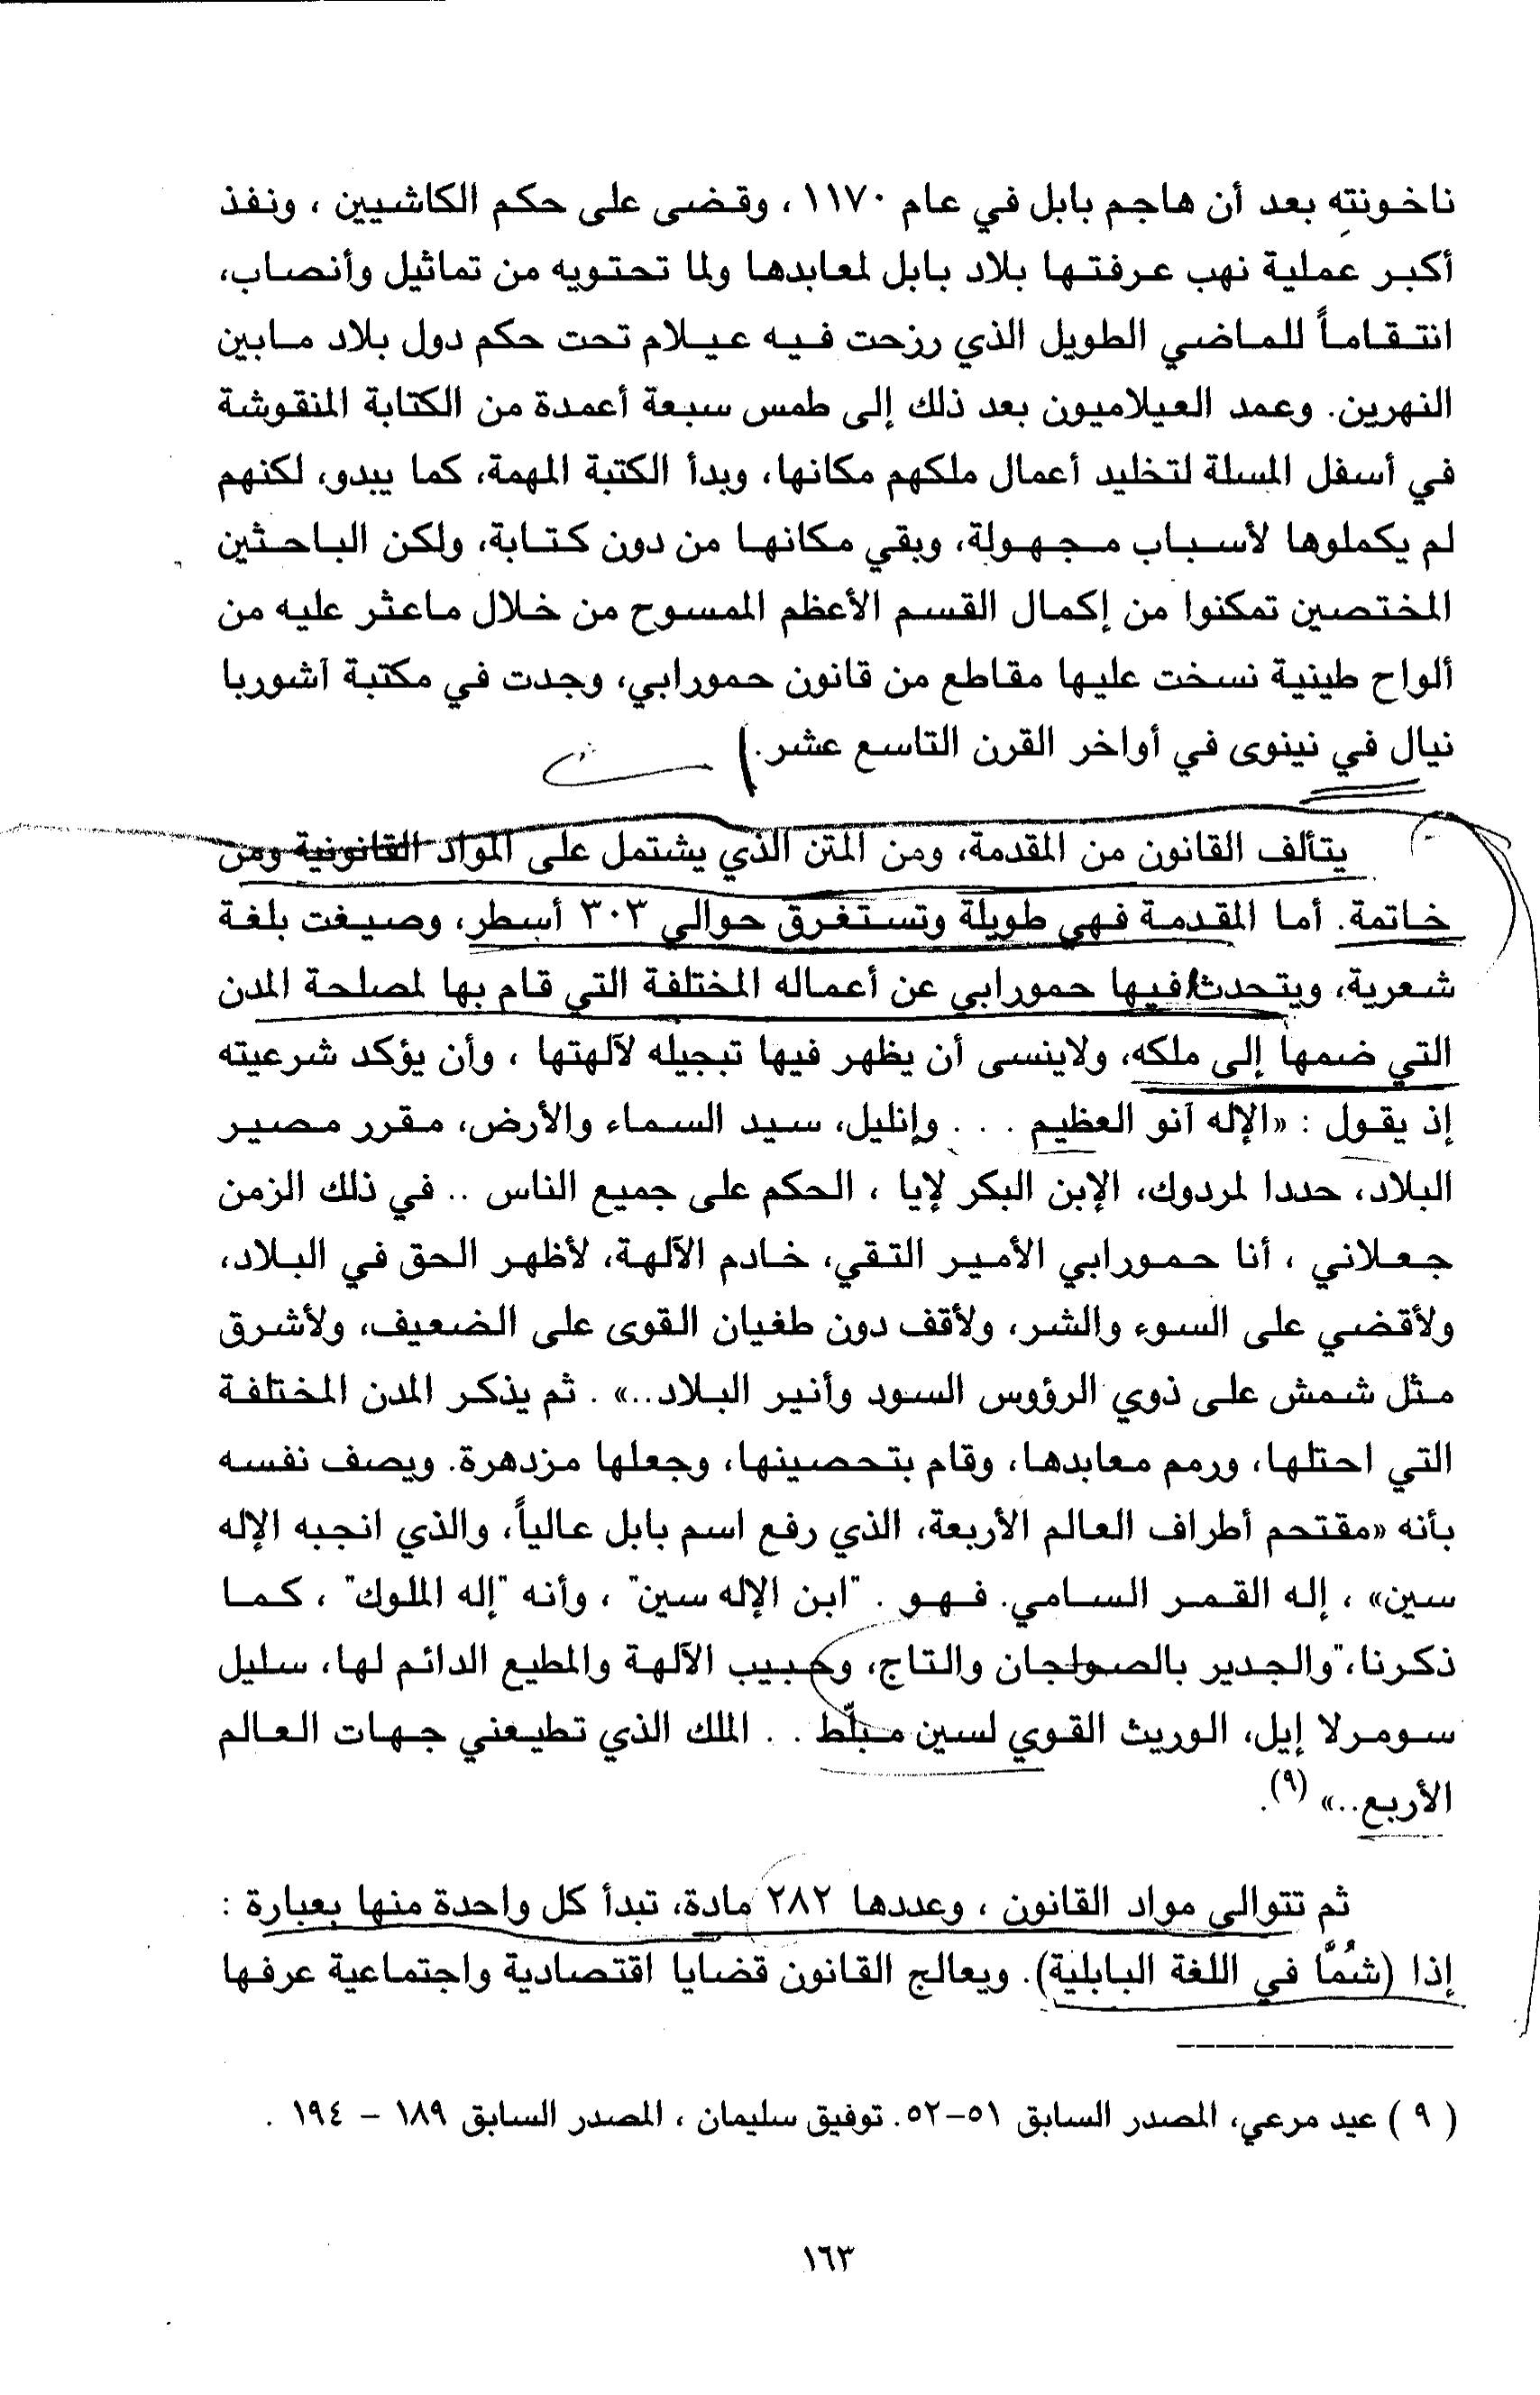 ناخونته بعد أن هاجم بابل في عام ١١٧٠ ، وقضى على حكم الكاشيين ، ونفذ
أكبر عملية نهب عرفتها بلاد بابل لمعابدها ولما تحتويه من تماثيل وأنصاب،
انتقاماً للماضي الطويل الذي رزحت فيه عيلام تحت حكم دول بلاد مابين
النهرين. وعمد العيلاميون بعد ذلك إلى طمس سبعة أعمدة من الكتابة المنقوشة
في أسفل المسلة لتخليد أعمال ملكهم مكانها، وبدأ الكتبة المهمة، كما يبدو، لكنهم
لم يكملوها لأسباب مجهولة، وبقي مكانها من دون كتابة، ولكن الباحثين
المختصين تمكنوا من إكمال القسم الأعظم الممسوح من خلال ماعثر عليه من
ألواح طينية نسخت عليها مقاطع من قانون حمورابي، وجدت في مكتبة آشوربا
نيال في نينوى في أواخر القرن التاسع عشر.
يتألف القانون من المقدمة، ومن المتن الذي يشتمل على المواد القانونية ومن
خاتمة. أما المقدمة فهي طويلة وتستغرق حوالي ٣٠٣ أسطر، وصيغت بلغة
شعرية، ويتحدث فيها حمورابي عن أعماله المختلفة التي قام بها لمصلحة المدن
التي ضمها إلى ملكه، ولاينسى أن يظهر فيها تبجيله لآلهتها ، وأن يؤكد شرعيته
إذ يقول : «الإله آنو العظيم . . . وإنليل، سيد السماء والأرض، مقرر مصير
البلاد، حددا لمردوك، الإبن البكر لإيا ، الحكم على جميع الناس .. في ذلك الزمن
جعلاني ، أنا حمورابي الأمير التقي، خادم الآلهة، لأظهر الحق في البلاد،
ولأقضي على السوء والشر، ولأقف دون طغيان القوى على الضعيف، ولأشرق
مثل شمش على ذوي الرؤوس السود وأنير البلاد..» . ثم يذكر المدن المختلفة
التي احتلها، ورمم معابدها، وقام بتحصينها، وجعلها مزدهرة. ويصف نفسه
بأنه «مقتحم أطراف العالم الأربعة، الذي رفع اسم بابل عالياً، والذي انجبه الإله
سين» ، إله القمر السامي. فهو . "ابن الإله سين" ، وأنه "إله الملوك" ، كما
ذكرنا،"والجدير بالصولجان والتاج، وحبيب الآلهة والمطيع الدائم لها، سليل
سومرلا إيل، الوريث القوي لسين مبلّط . . الملك الذي تطيعني جهات العالم
الأربع..» (٩).
ثم تتوالى مواد القانون ، وعددها ٢٨٢ مادة، تبدأ كل واحدة منها بعبارة :
إذا (شُمَّا في اللغة البابلية). ويعالج القانون قضايا اقتصادية واجتماعية عرفها
( ٩ ) عيد مرعي، المصدر السابق ٥١-٥٢. توفيق سليمان ، المصدر السابق ١٨٩ - ١٩٤ .
١٦٣